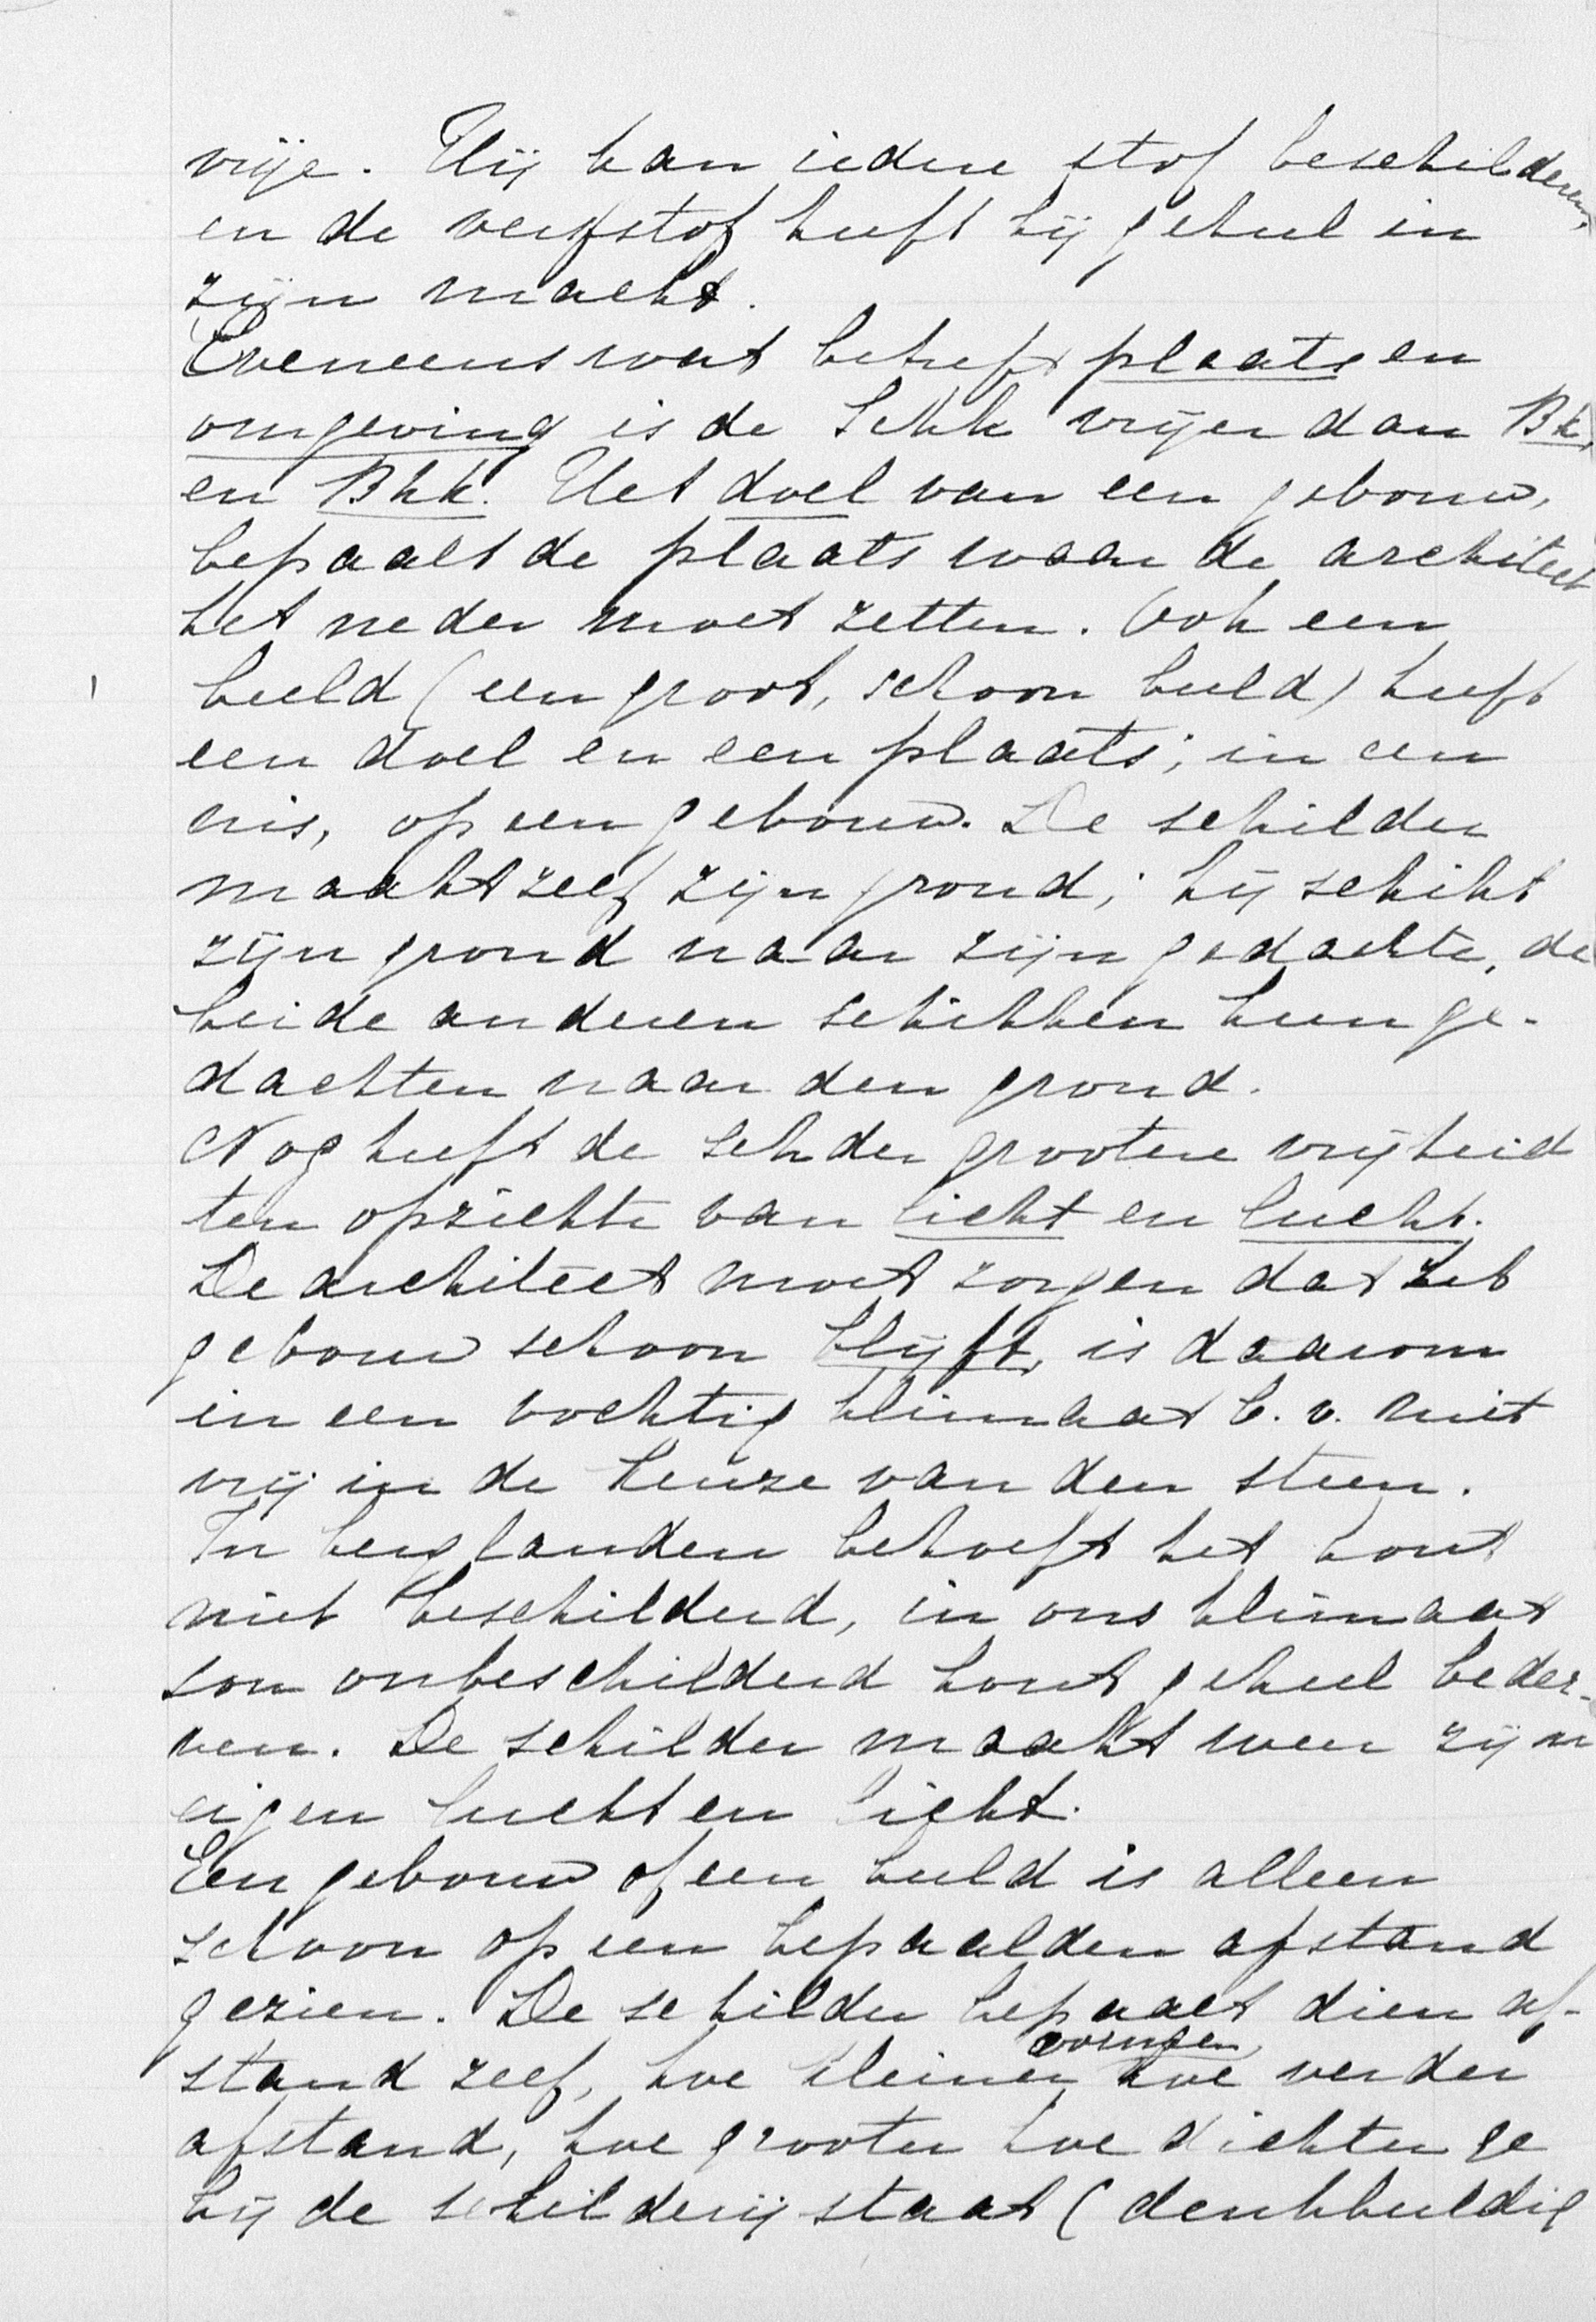 vrije. Hij kan iedere stof beschilderen,
en de verfstof heeft hij geheel in
zijn macht.
Eveneens wat betreft plaats en
omgeving is de Schk vrijer dan Bk,
en Bhk. Het doel van een gebouw,
bepaalt de plaats waar de architect
het neder moet zetten. Ook een
beeld (een groot, schoon beeld) heeft
een doel en een plaats; in een
nis, op een gebouw. De schilder
maakt zelf zijn grond; hij schikt
zijn grond naar zijn gedachte, de
beide anderen schikken hun ge-
dachten naar den grond.
Nog heeft de schder grootere vrijheid
ten opzichte van licht en lucht.
De architect moet zorgen dat het
gebouw schoon blijft, is daarom
in een vochtig klimaat b.v. niet
vrij in de keuze van den steen.
In berglanden behoeft het hout
niet beschilderd, in ons klimaat
sou onbeschilderd hout geheel beder-
ven. De schilder maakt weer zijn
eigen lucht en licht.
Een gebouw of een beeld is alleen
schoon op een bepaalden afstand
gezien. De schilder bepaalt dien af-
stand zelf, hoe kleiner vormen, hoe verder
afstand, hoe grooter hoe dichter ge
bij de schilderij staat (denkbeeldig